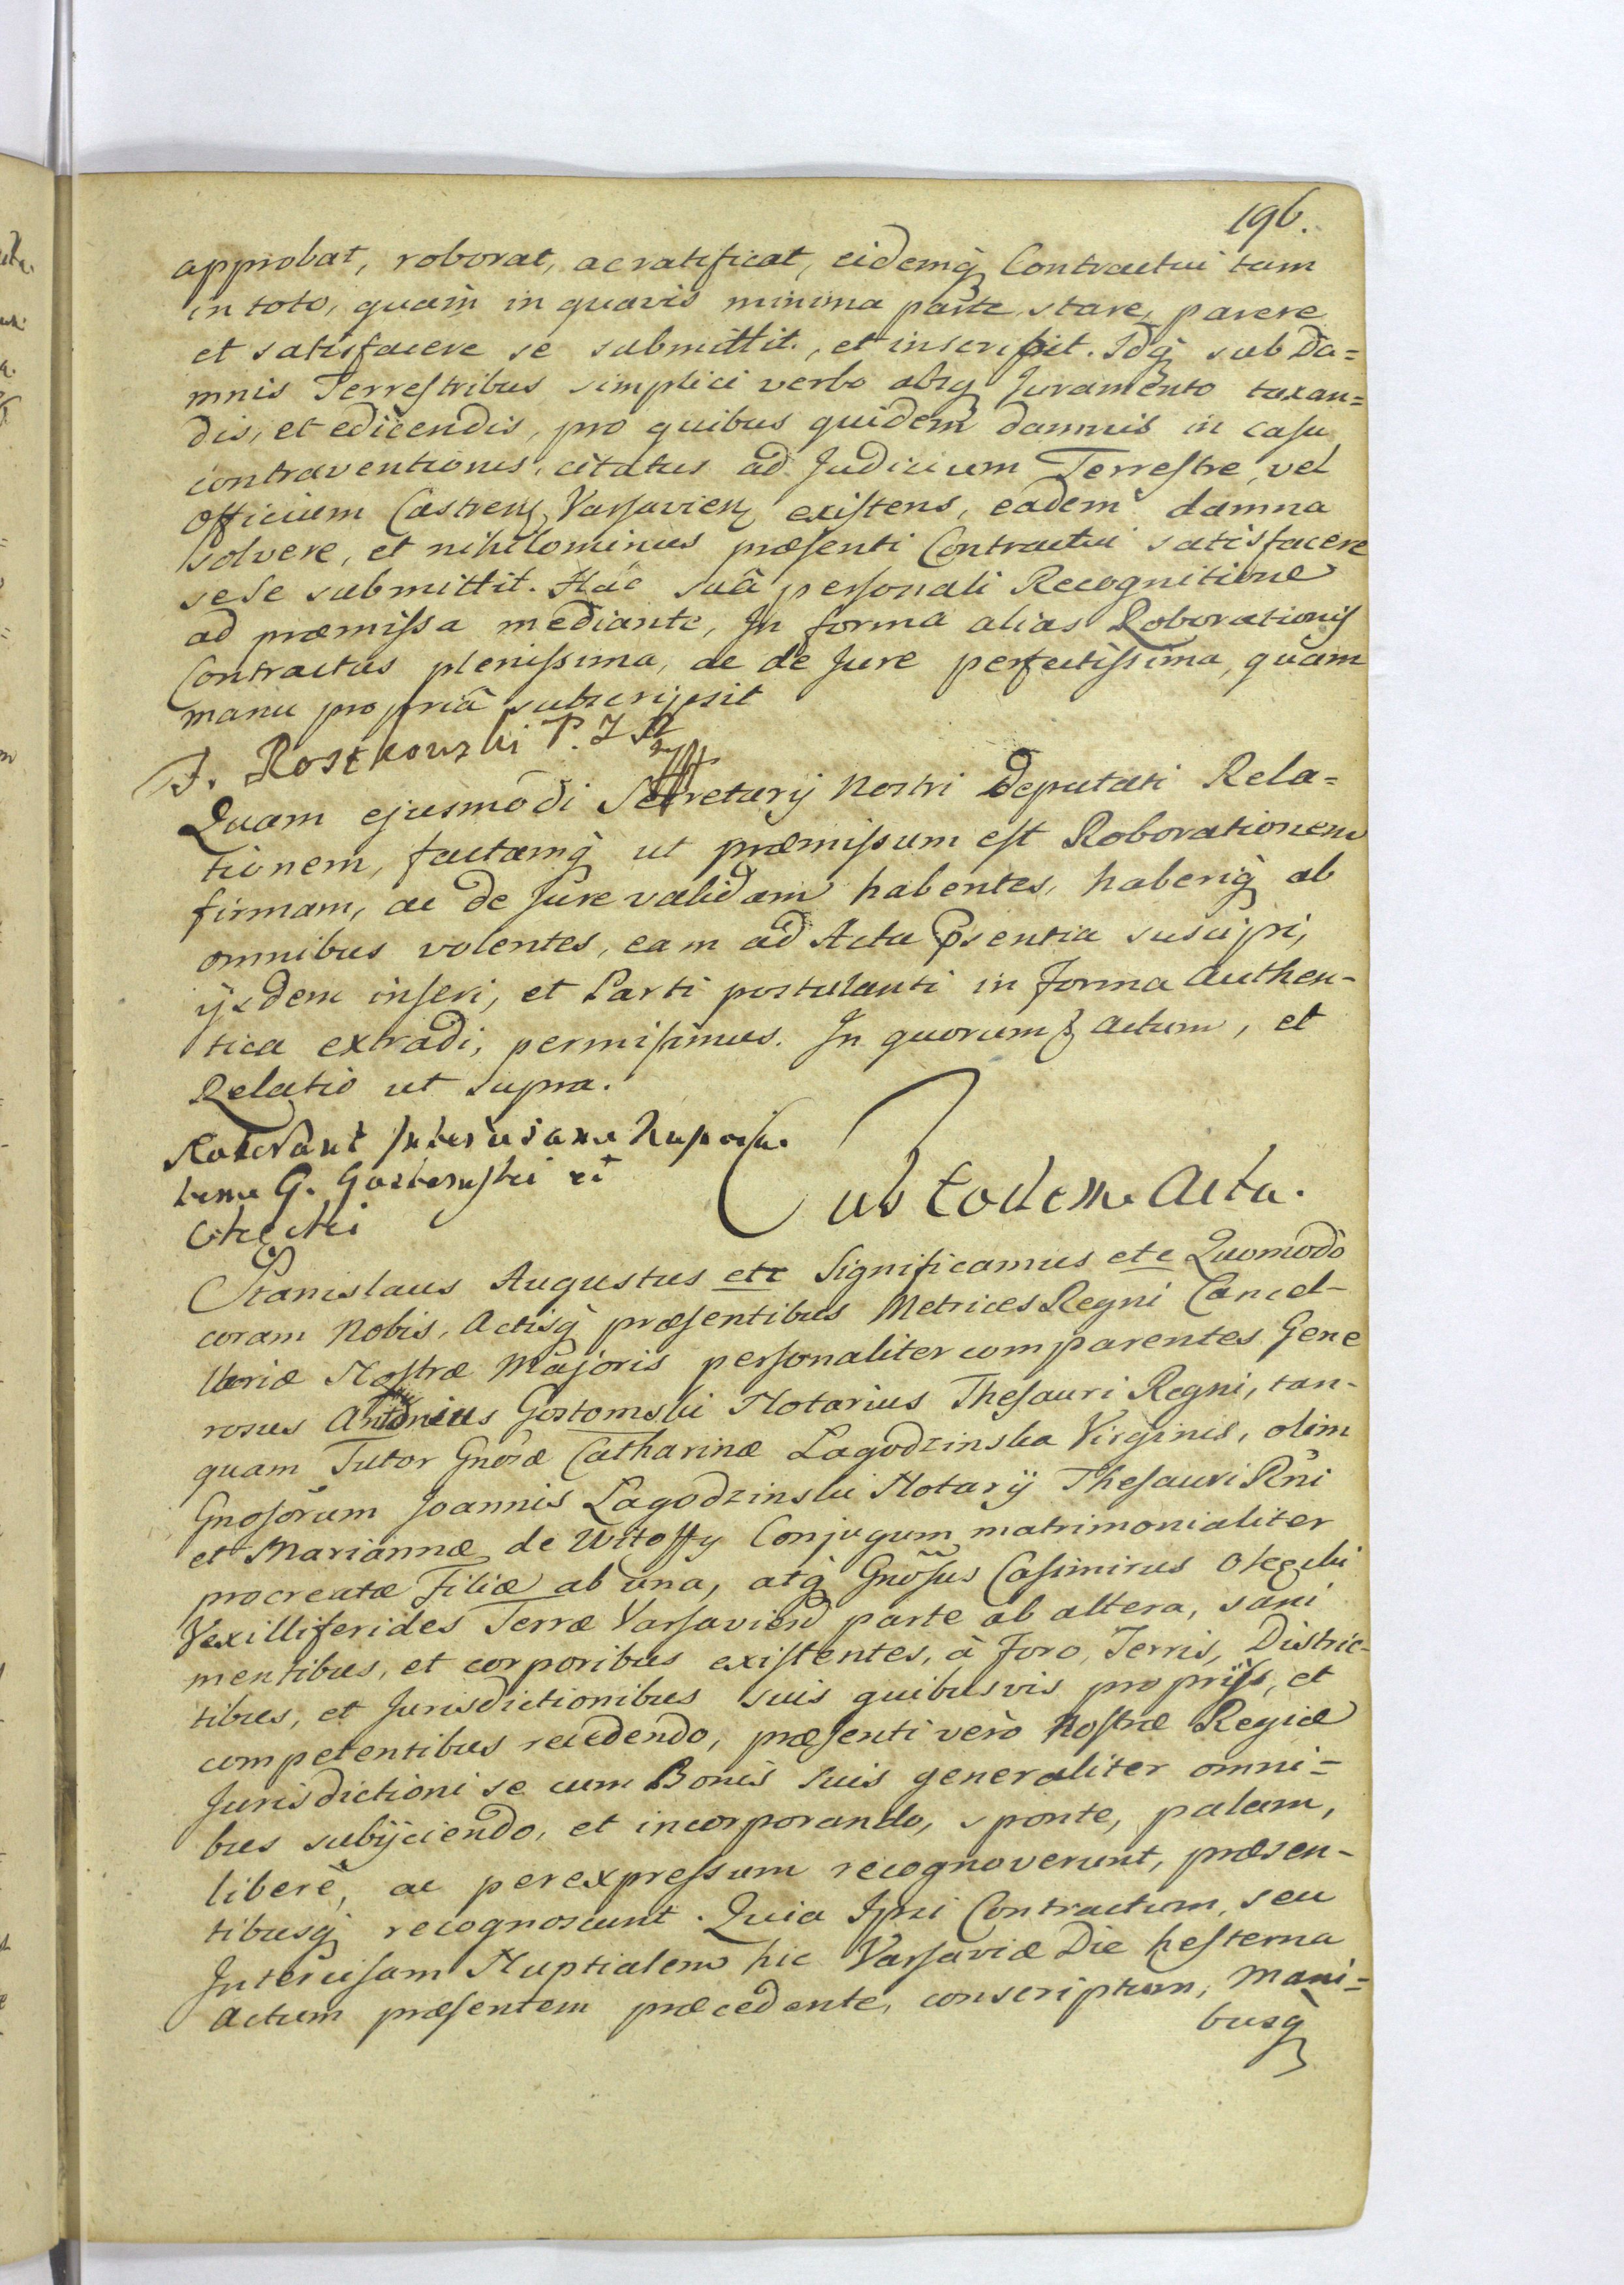 196.
approbat, roborat, ac ratificat, eidemq́ Contractui tam
in toto, quam in quavis minima parte stare, parere
et satisfacere se submittit, et inscribit. Idq́ sub Da=
mnis Terrestribus simplici verbo absq́ Juramento taxan=
dis, et edicendis, pro quibus quidem damnis in casu
contraventionis, citatus ad Judicium Terrestre, vel
Officium Castren Varsavien existens, eadem damna
solvere, et nihilominus præsenti Contractui satisfacere
sese submittit. Hac suâ personali Recognitione
ad præmissa mediante, In forma alias Roborationis
Contractus plenissima, ac de Jure perfectissima, quam
manu propriâ subscripsit
F. Roszkowski P. J
Quam ejusmodi Secretarij Nostri Deputati Rela=
tionem, factamq́ ut præmissum est Roborationem
firmam, ac de Jure validam habentes, haberiq́ ab
omnibus volentes, eam ad Acta Psentia suscipi,
ijsdem inseri, et Parti postulanti in forma Authen-
tica extradi, permisimus. In quorum Actum, et
Relatio ut supra.
Roborant Intercisam Nuptia-
lem G. Gostomski et
Otocki
Sub Eodem Actu.
Stanislaus Augustus etc Significamus etc Quomodo
coram Nobis, Actisq́ præsentibus Metrices Regni Cancel-
lariæ Nostræ Majoris personaliter comparentes Gene
rosus Antonius Gostomski Notarius Thesauri Regni, tan-
quam Tutor Gnosæ Catharinæ Lagodzinska Virginis, olim
Gnosorum Joannis Lagodzinski Notarij Thesauri Rni
et Mariannæ de Wttoffy Conjugum matrimonialiter
procreatæ Filiæ ab una, atq́ Gnosus Casimirus
Vexilliferides Terræ Varsavien parte ab altera, sani
mentibus, et corporibus existentes, à Foro, Terris, Distric-
tibus, et Jurisdictionibus suis quibusvis proprijs, et
competentibus recedendo, præsenti verò Nostræ Regiæ
Jurisdictioni se cum Bonis suis generaliter omni=
bus subijciendo, et incorporando, sponte, palam,
liberè, ac per expressum recognoverunt, præsen-
tibusq́ recognoscunt. Quia Ipsi Contractum, seu
Intercisam Nuptialem hic Varsaviæ Die hesterna
Actum præsentem præcedente, conscriptum, Mani=
busq́